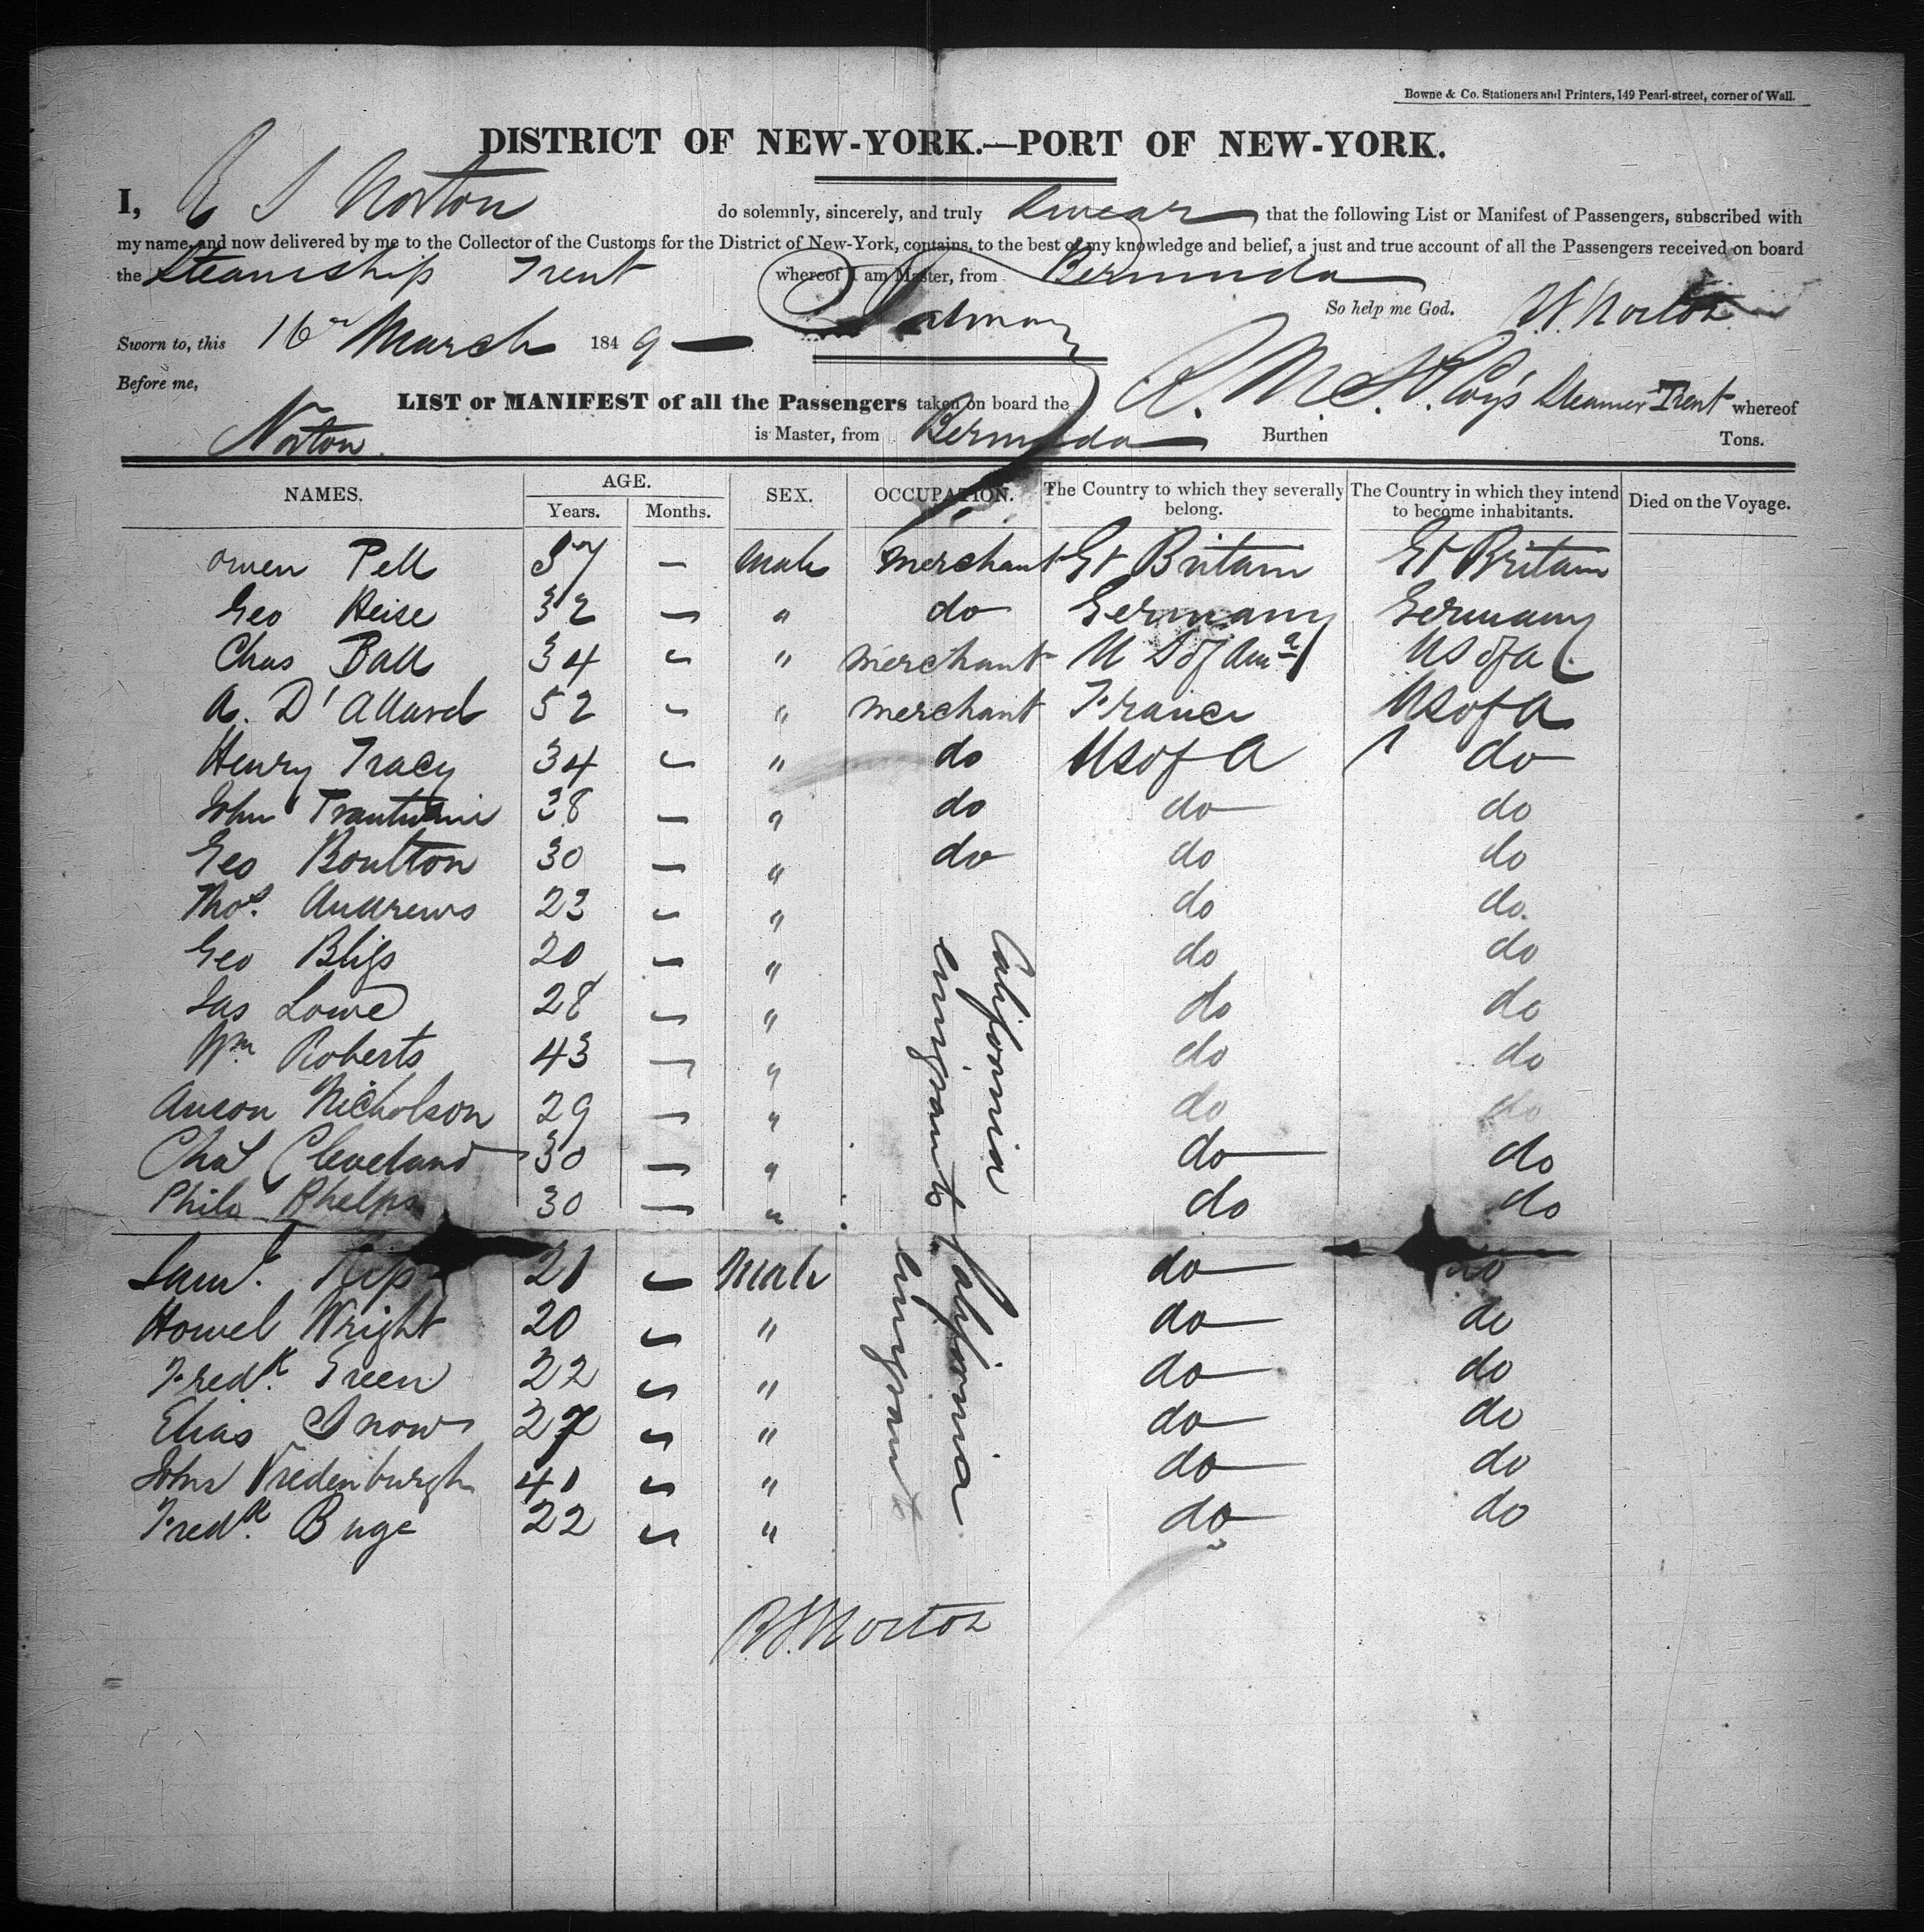 Bowne & Co. Stationers and Printers, 149 Pearl-street, corner of Wall.
DISTRICT OF NEW-YORK.—PORT OF NEW-YORK.
I, R S Norton do solemnly, sincerely, and truly swear that the following List or Manifest of Passengers, subscribed with
my name, and now delivered by me to the Collector of the Customs for the District of New-York, contains, to the best of my knowledge and belief, a just and true account of all the Passengers received on board
the Steamship Trent whereof I am Master, from Bermuda
So help me God. Norton
Sworn to, this 16 March 1849
Before me,
LIST or MANIFEST of all the Passengers taken on board the R. M. S. P. Coy's Steamer Trent whereof
Norton is Master, from Bermuda Burthen Tons.
NAMES. AGE. SEX. OCCUPATION. The Country to which they severally belong. The Country in which they intend to become inhabitants. Died on the Voyage.
Years. Months.
Owen Pell 57 — Male Merchant Gt Britain Gt Britain
Geo Heise 32 — " do Germany Germany
Chas Ball 34 — " merchant U S of Ama U S of A
A. D'Allard 52 — " merchant France U S of A
Henry Tracy 34 — " do U S of A do
John Trautwine 38 — " do do do
Geo Boulton 30 — " do do do
Thos. Andrews 23 — " do do
Geo Bliss 20 — " do do
Jas Lowe 28 — " do do
Wm Roberts 43 — " do do
Anson Nicholson 29 — " do do
Chas Cleveland 30 — " do do
Philo Phelps 30 — " do do
California emigrants
Saml. Kip 21 — Male do do
Howel Wright 20 — " do do
Fredk. Green 22 — " do do
Elias Snow 27 — " do do
John Vredenburgh 41 — " do do
Fredk. Buge 22 — " do do
California emigrants
R S Norton